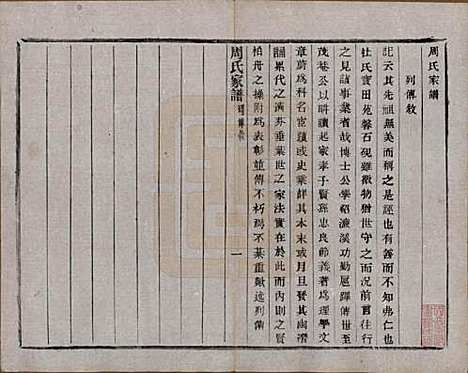 周氏家譜
列傳敘
記云其先祖無美而稱之是誣也有善而不知弗仁也
杜氏寶田苑磐石硯雖微物猶世守之而況前言往行
之見諸事業者哉博士公學紹濂溪功勤扈蹕傳世至
茂菴公以明經起家孝子賢孫忠良節義著為理學文
章蔚為科名宦績或史乘詳其本末或月旦發其幽潛
誦累代之清芬垂葉世之家法實在於此而唐大之賢
柏舟之操附為表彰並傳不朽焉不綦重歟述列傳
周氏家譜
列傳敘
一